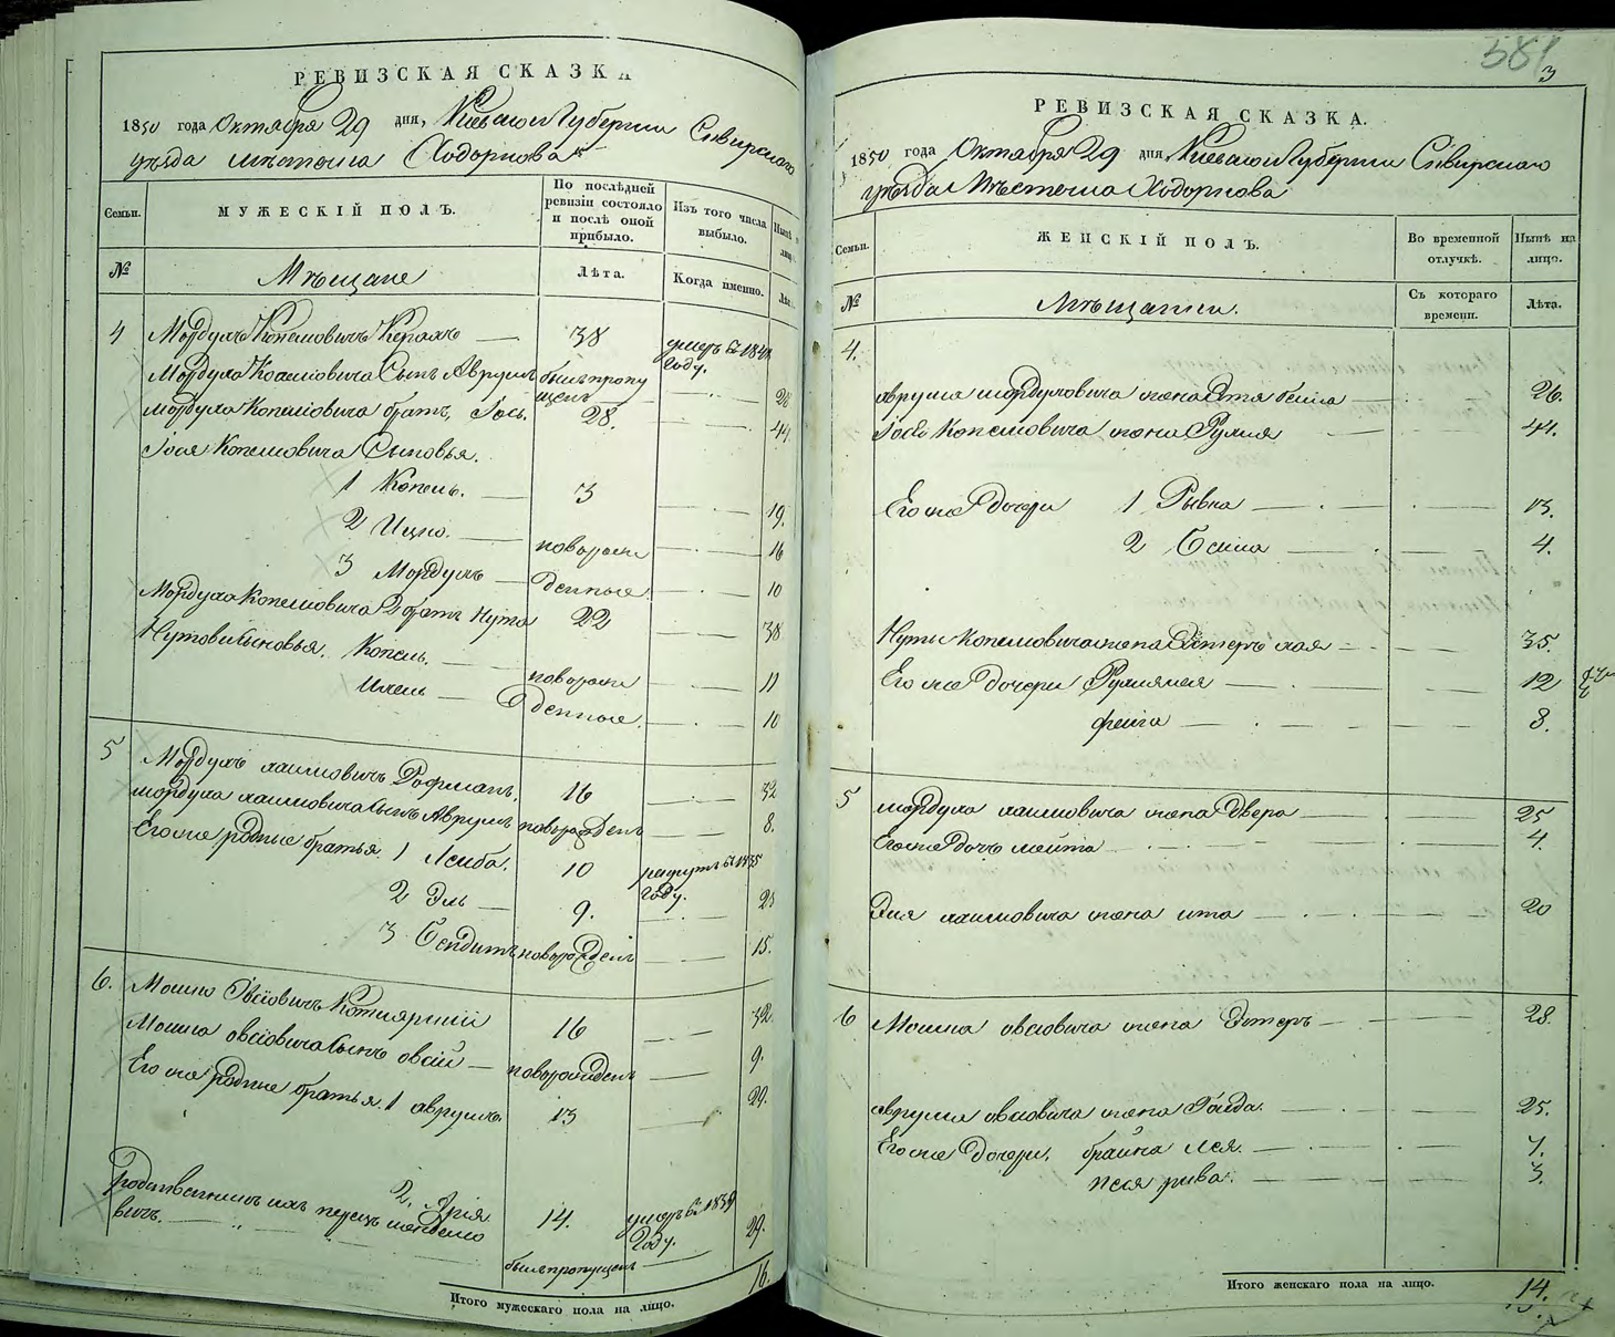 РЕВИЗСКАЯ СКАЗКА
1850 года Октября 29 дня, Кіевской Губерніи Сквирскаго
уѣзда мѣстечка Ходоркова
Семьи.
МУЖЕСКІЙ ПОЛЪ.
По послѣдней
ревизіи состояло
и послѣ оной
прибыло.
Изъ того числа
выбыло.
Нынѣ
№
Мѣщане
Лѣта.
Когда именно.
4 Мордухъ Копелиовичъ 38 умеръ въ
году.
Мордуха Копелиовича Сынъ Аврумъ былъ пропу
щенъ 28
Мордуха Копелиовича братъ, Іось. 28. 44
Іося Копелиовича Сыновья.
1 Копель. 3 19.
2 Ицко. новорож 16
3 Мордухъ денные. 10
Мордуха Копелиовича 2 братъ Нута 22 38
Нутови Сыновья. Копель. новорож 11
денные. 10
5 Мордухъ хаимовичъ Рофманъ. 16 32
мордуха хаимовича Сынъ Аврумъ новорожденъ 8.
Его же родные братья. 1 Лейба. 10 рекрутъ въ 1835
году.
2 Эль 9. 25
3 Бендитъ новорожденъ 15.
6. Мошко Овсіовичъ Котлярскій 16 32.
Мошка овсіовича Сынъ овсій новорожденъ 9.
Его же родные братья. 1 аврумъ. 13 29.
2. Арія 14. умеръ въ 1839
году.
Родственникъ ихъ перецъ
вичъ. былъ пропущенъ 29.
Итого мужескаго пола на лицо. 16.
581
3
РЕВИЗСКАЯ СКАЗКА.
1850 года Октября 29 дня Кіевской Губерніи Сквирскаго
уѣзда Мѣстечка Ходоркова
Семьи.
ЖЕНСКІЙ ПОЛЪ.
Во временной
отлучкѣ.
Нынѣ на
лицо.
№
Мѣщанки.
Съ котораго
времени.
Лѣта.
4.
аврума мордуховича жена 26.
Іося Копелиовича жена Рухля 44.
Его же дочери 1 Рывка 13.
2 Бейла 4.
Нуты Копелиовича жена Эстеръ хая 35.
Его же дочери 12
фейга 8.
5 мордуха хаимовича жена Двера 25
Его же дочь мейта 4.
Эля хаимовича жена ита 20
6 Мошка овсіовича жена Эстеръ 28.
аврума овсіовича жена Голда. 25.
Его же дочери. брайна лея. 7.
песя рива. 3.
Итого женскаго пола на лицо. 14.